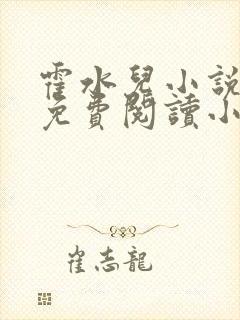 霍水兒小説
免費閱讀小
崔志龍